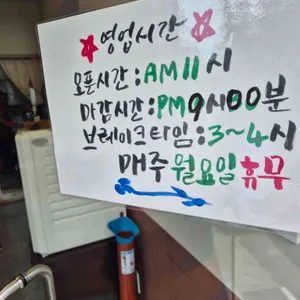 영업시간
오픈시간:AM11시
마감시간:PM9시00분
브레이크타임:3~4시
매주 월요일 휴무